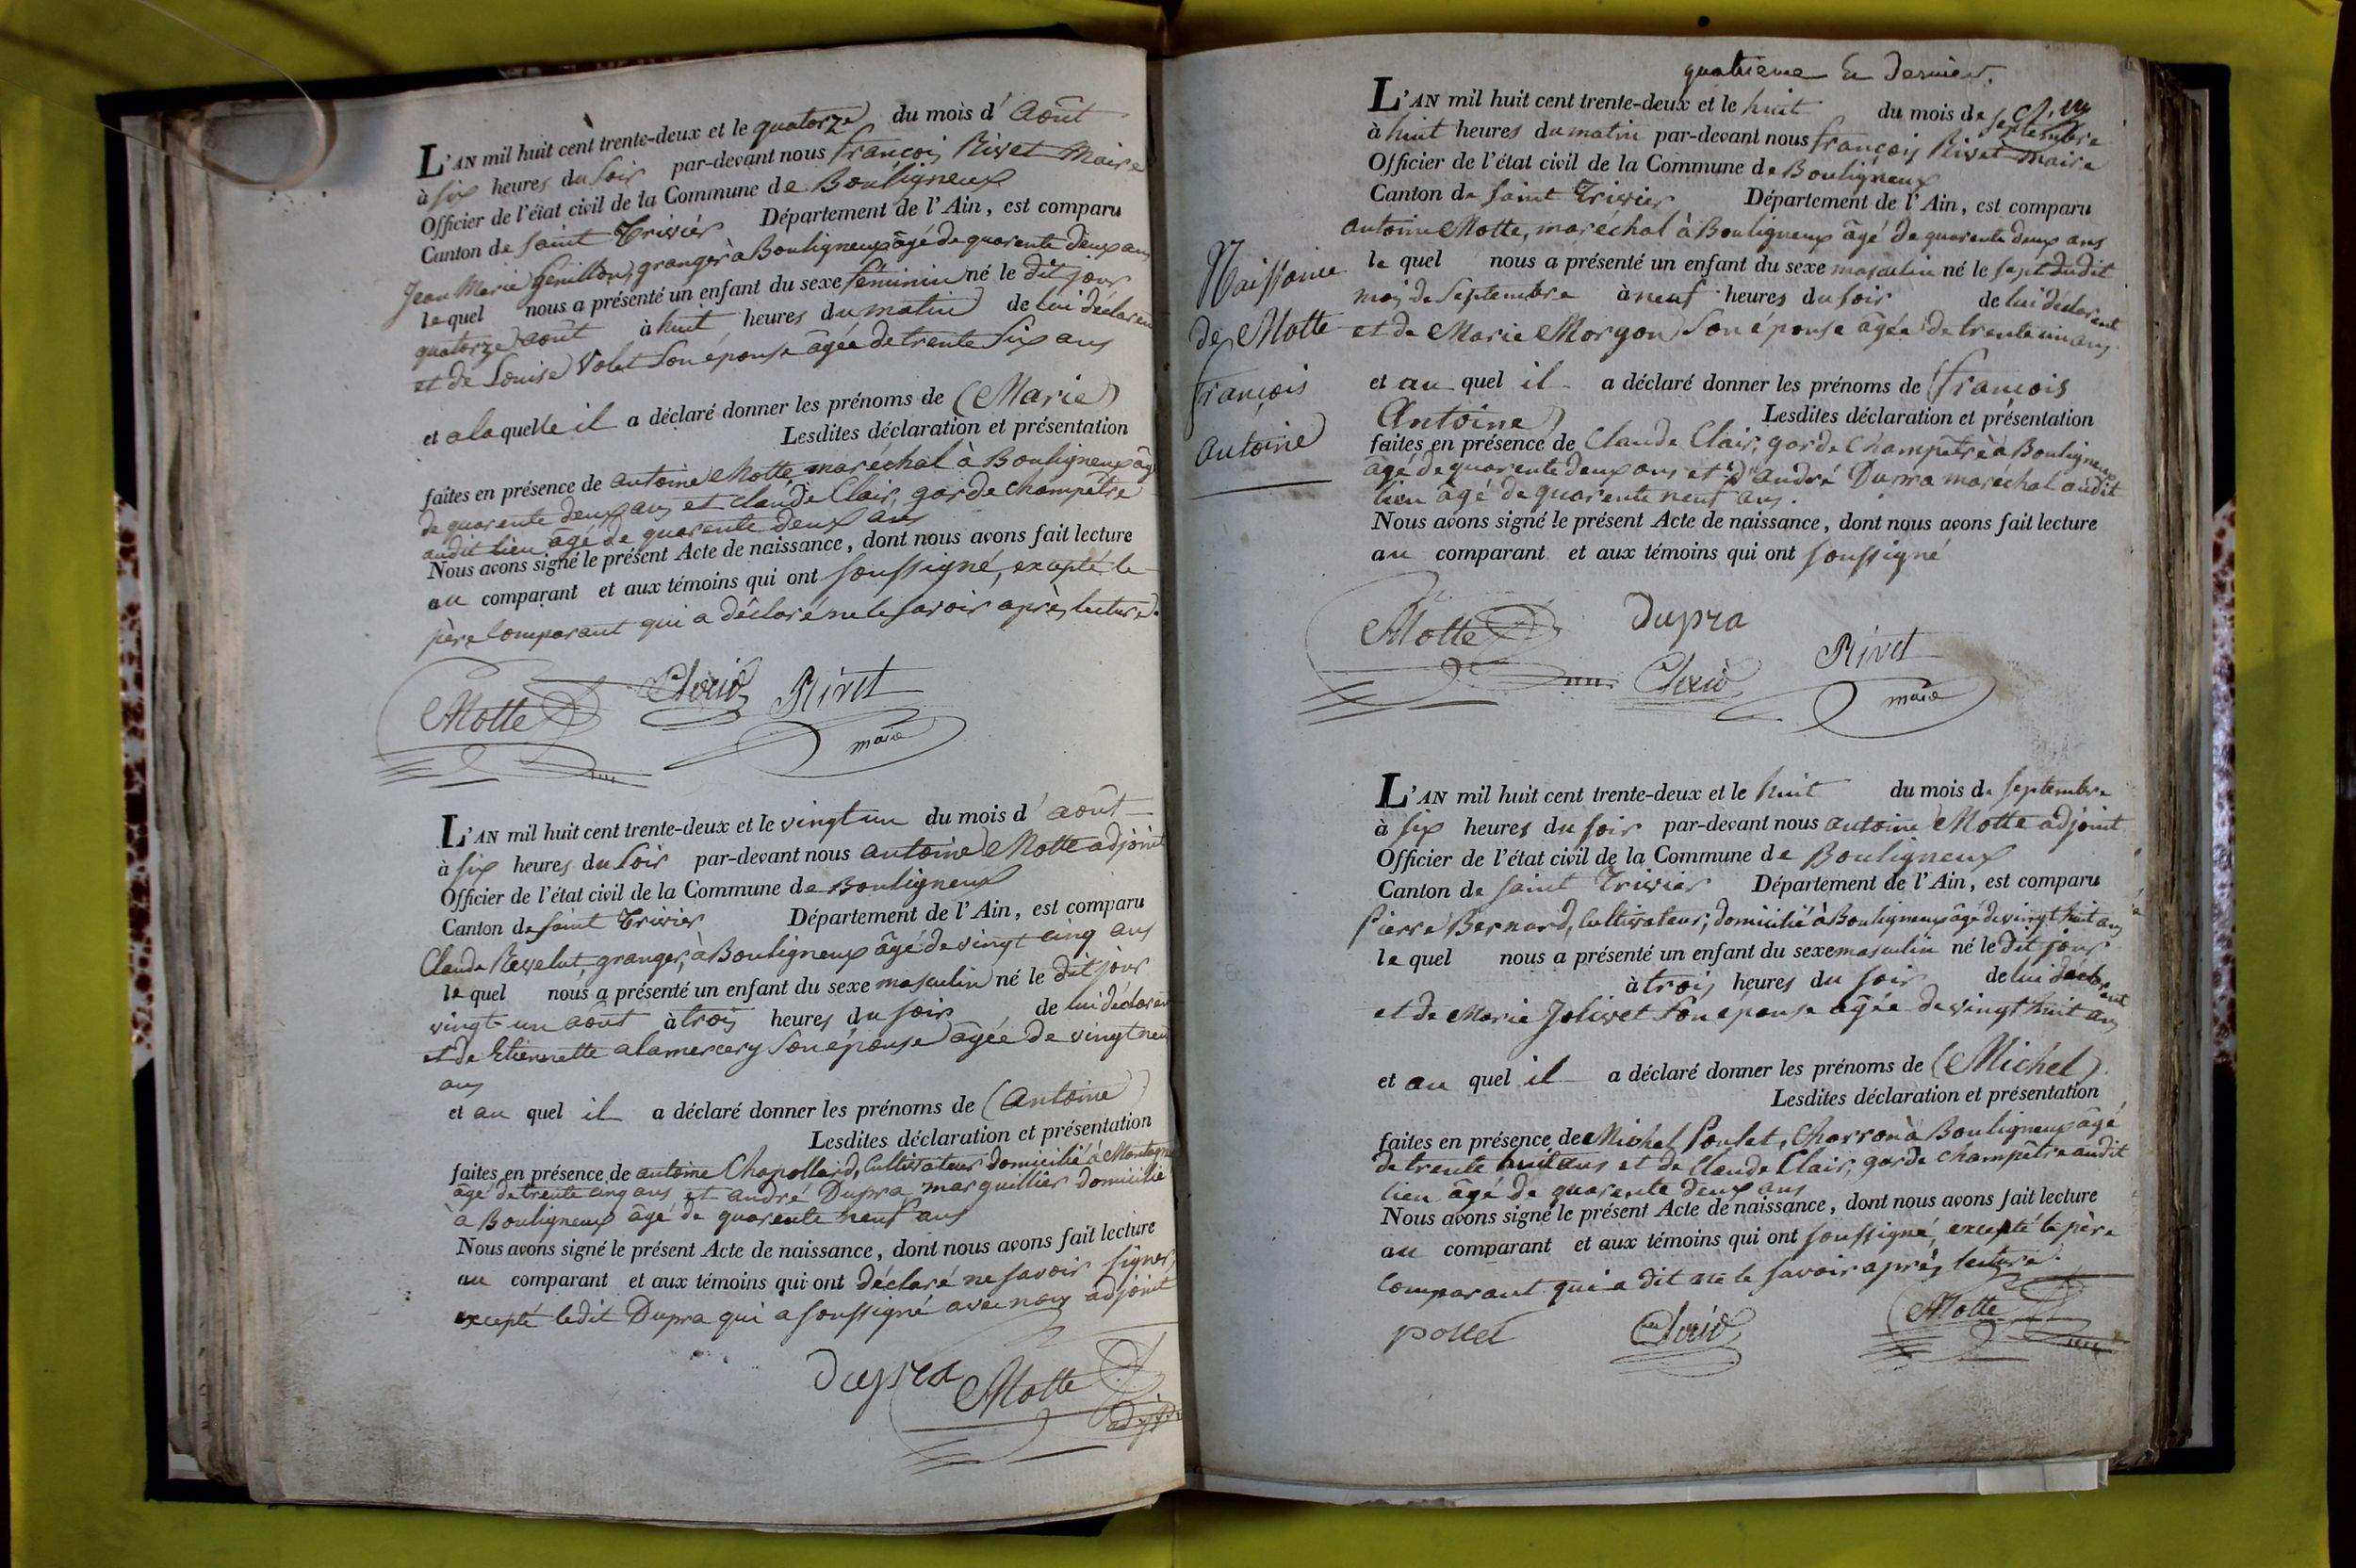 L'AN mil huit cent trente-deux et le quatorze du mois d' Août
à six heures du soir par-devant nous françois Rivet Maire
Officier de l'état civil de la Commune de Bouligneux
Canton de saint Trivier Département de l'Ain, est comparu
Jean Marie Genillon, granger à Bouligneux âgé de quarente deux ans
le quel nous a présenté un enfant du sexe féminin né le dit jour
quatorze août à huit heures du matin de lui déclarant
et de Louise Volet son épouse âgée de trente six ans
et a la quelle il a déclaré donner les prénoms de (Marie)
Lesdites déclaration et présentation
faites en présence de antoine Motte maréchal à Bouligneux âgé
de quarente deux ans et claude Clair, garde champêtre
audit lieu âgé de quarente deux ans
Nous avons signé le présent Acte de naissance, dont nous avons fait lecture
au comparant et aux témoins qui ont soussigné, excepté le
père comparant qui a déclaré ne le savoir après lecture.
Motte Clair Rivet
maire
L'AN mil huit cent trente-deux et le vingt un du mois d' août
à six heures du soir par-devant nous antoine Motte adjoint
Officier de l'état civil de la Commune de Bouligneux
Canton de saint Trivier Département de l'Ain, est comparu
Claude Revelut, granger, à Bouligneux âgé de vingt cinq ans
le quel nous a présenté un enfant du sexe masculin né le dit jour
vingt-un août à trois heures du soir de lui déclarant
et de Etiennette alamercery son épouse âgée de vingt neuf
ans
et au quel il a déclaré donner les prénoms de (Antoine)
Lesdites déclaration et présentation
faites en présence de antoine Chapolland, cultivateur domicilié à
âgé de trente cinq ans et andré Dupra marguillier domicilié
à Bouligneux âgé de quarente neuf ans
Nous avons signé le présent Acte de naissance, dont nous avons fait lecture
au comparant et aux témoins qui ont déclaré ne savoir signer,
excepté ledit Dupra qui a soussigné avec nous adjoint
Dupra Motte
quatrieme et dernier.
L'AN mil huit cent trente-deux et le huit du mois de septembre
à huit heures du matin par-devant nous françois Rivet maire
Officier de l'état civil de la Commune de Bouligneux
Canton de saint Trivier Département de l'Ain, est comparu
antoine Motte, maréchal à Bouligneux âgé de quarente deux ans
le quel nous a présenté un enfant du sexe masculin né le sept dudit
mois de Septembre à neuf heures du soir de lui déclarant
et de Marie Morgon son épouse âgée de trente un ans
et au quel il a déclaré donner les prénoms de (françois
Antoine) Lesdites déclaration et présentation
faites en présence de Claude Clair, garde champêtre à Bouligneux
âgé de quarente deux ans et d'andré Dupra maréchal audit
lieu âgé de quarente neuf ans.
Nous avons signé le présent Acte de naissance, dont nous avons fait lecture
au comparant et aux témoins qui ont soussigné
Naissance
de Motte
françois
antoine
Motte Dupra
Clair Rivet
maire
L'AN mil huit cent trente-deux et le huit du mois de septembre
à six heures du soir par-devant nous antoine Motte adjoint
Officier de l'état civil de la Commune de Bouligneux
Canton de saint Trivier Département de l'Ain, est comparu
Pierre Bernard, cultivateur, domicilié à Bouligneux âgé de vingt huit ans
le quel nous a présenté un enfant du sexe masculin né le dit jour
à trois heures du soir de lui déclarant
et de Marie Jolivet son épouse âgée de vingt huit ans
et au quel il a déclaré donner les prénoms de (Michel)
Lesdites déclaration et présentation
faites en présence de Michel Poulet, Charron à Bouligneux âgé
de trente huit ans et de Claude Clair, garde champêtre audit
lieu âgé de quarente deux ans
Nous avons signé le présent Acte de naissance, dont nous avons fait lecture
au comparant et aux témoins qui ont soussigné, excepté le père
comparant qui a dit ne le savoir après lecture.
pollet Clair Motte